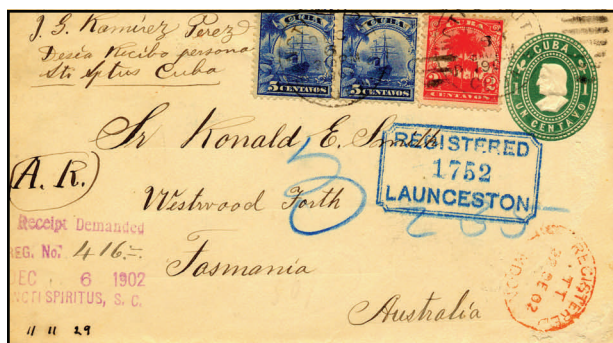 J. G. Ramírez Perez
Desea Recibo persona
Sti Sptus Cuba
CUBA
5 CENTAVOS
CUBA
5 CENTAVOS
CUBA
2 2
CENTAVOS
CUBA
1 1
UN CENTAVO
Sr Ronald E. Smith
REGISTERED
1752
LAUNCESTON
A. R.
Westwood Forth
Receipt Demanded
REG. No. 416
DEC 6 1902
NCTI SPIRITUS, S. C.
Tasmania
REGISTERED
DE 02
Australia
11 11 29